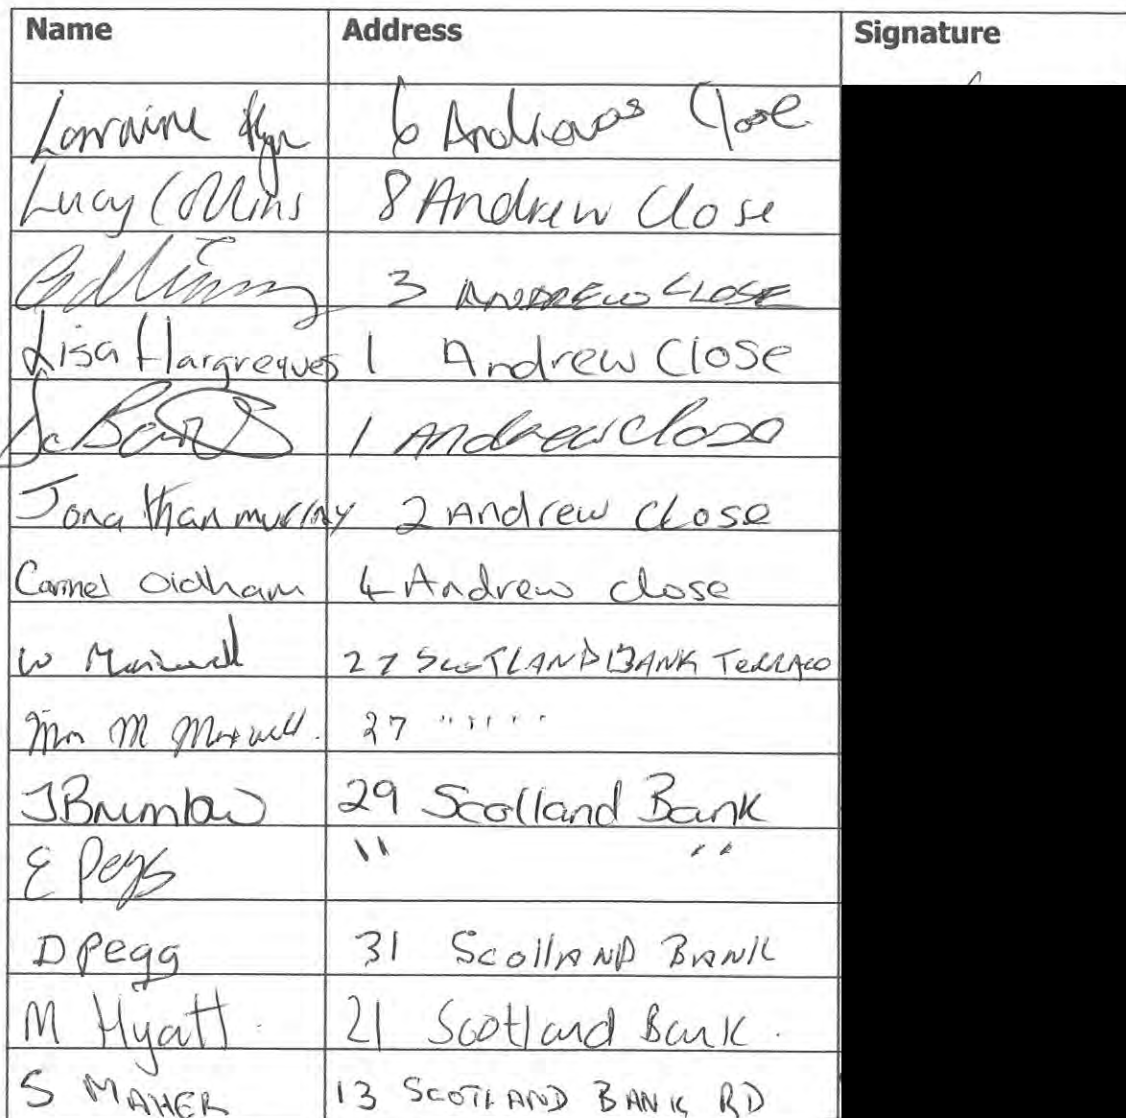 Name Address Signature
Lorraine 6 Andrews Close
Lucy Collins 8 Andrew Close
3 ANDREW CLOSE
Lisa Hargreaves 1 Andrew Close
1 Andrew Close
Jonathan murray 2 Andrew Close
Carmel Oldham 4 Andrew close
W Maxwell 27 SCOTLAND BANK TERRACE
Mrs M Maxwell. 27 " " " "
J Brumlow 29 Scotland Bank
E Pegg " "
D Pegg 31 Scotland BANK
M Hyatt. 21 Scotland Bank.
S MAHER 13 SCOTLAND BANK RD